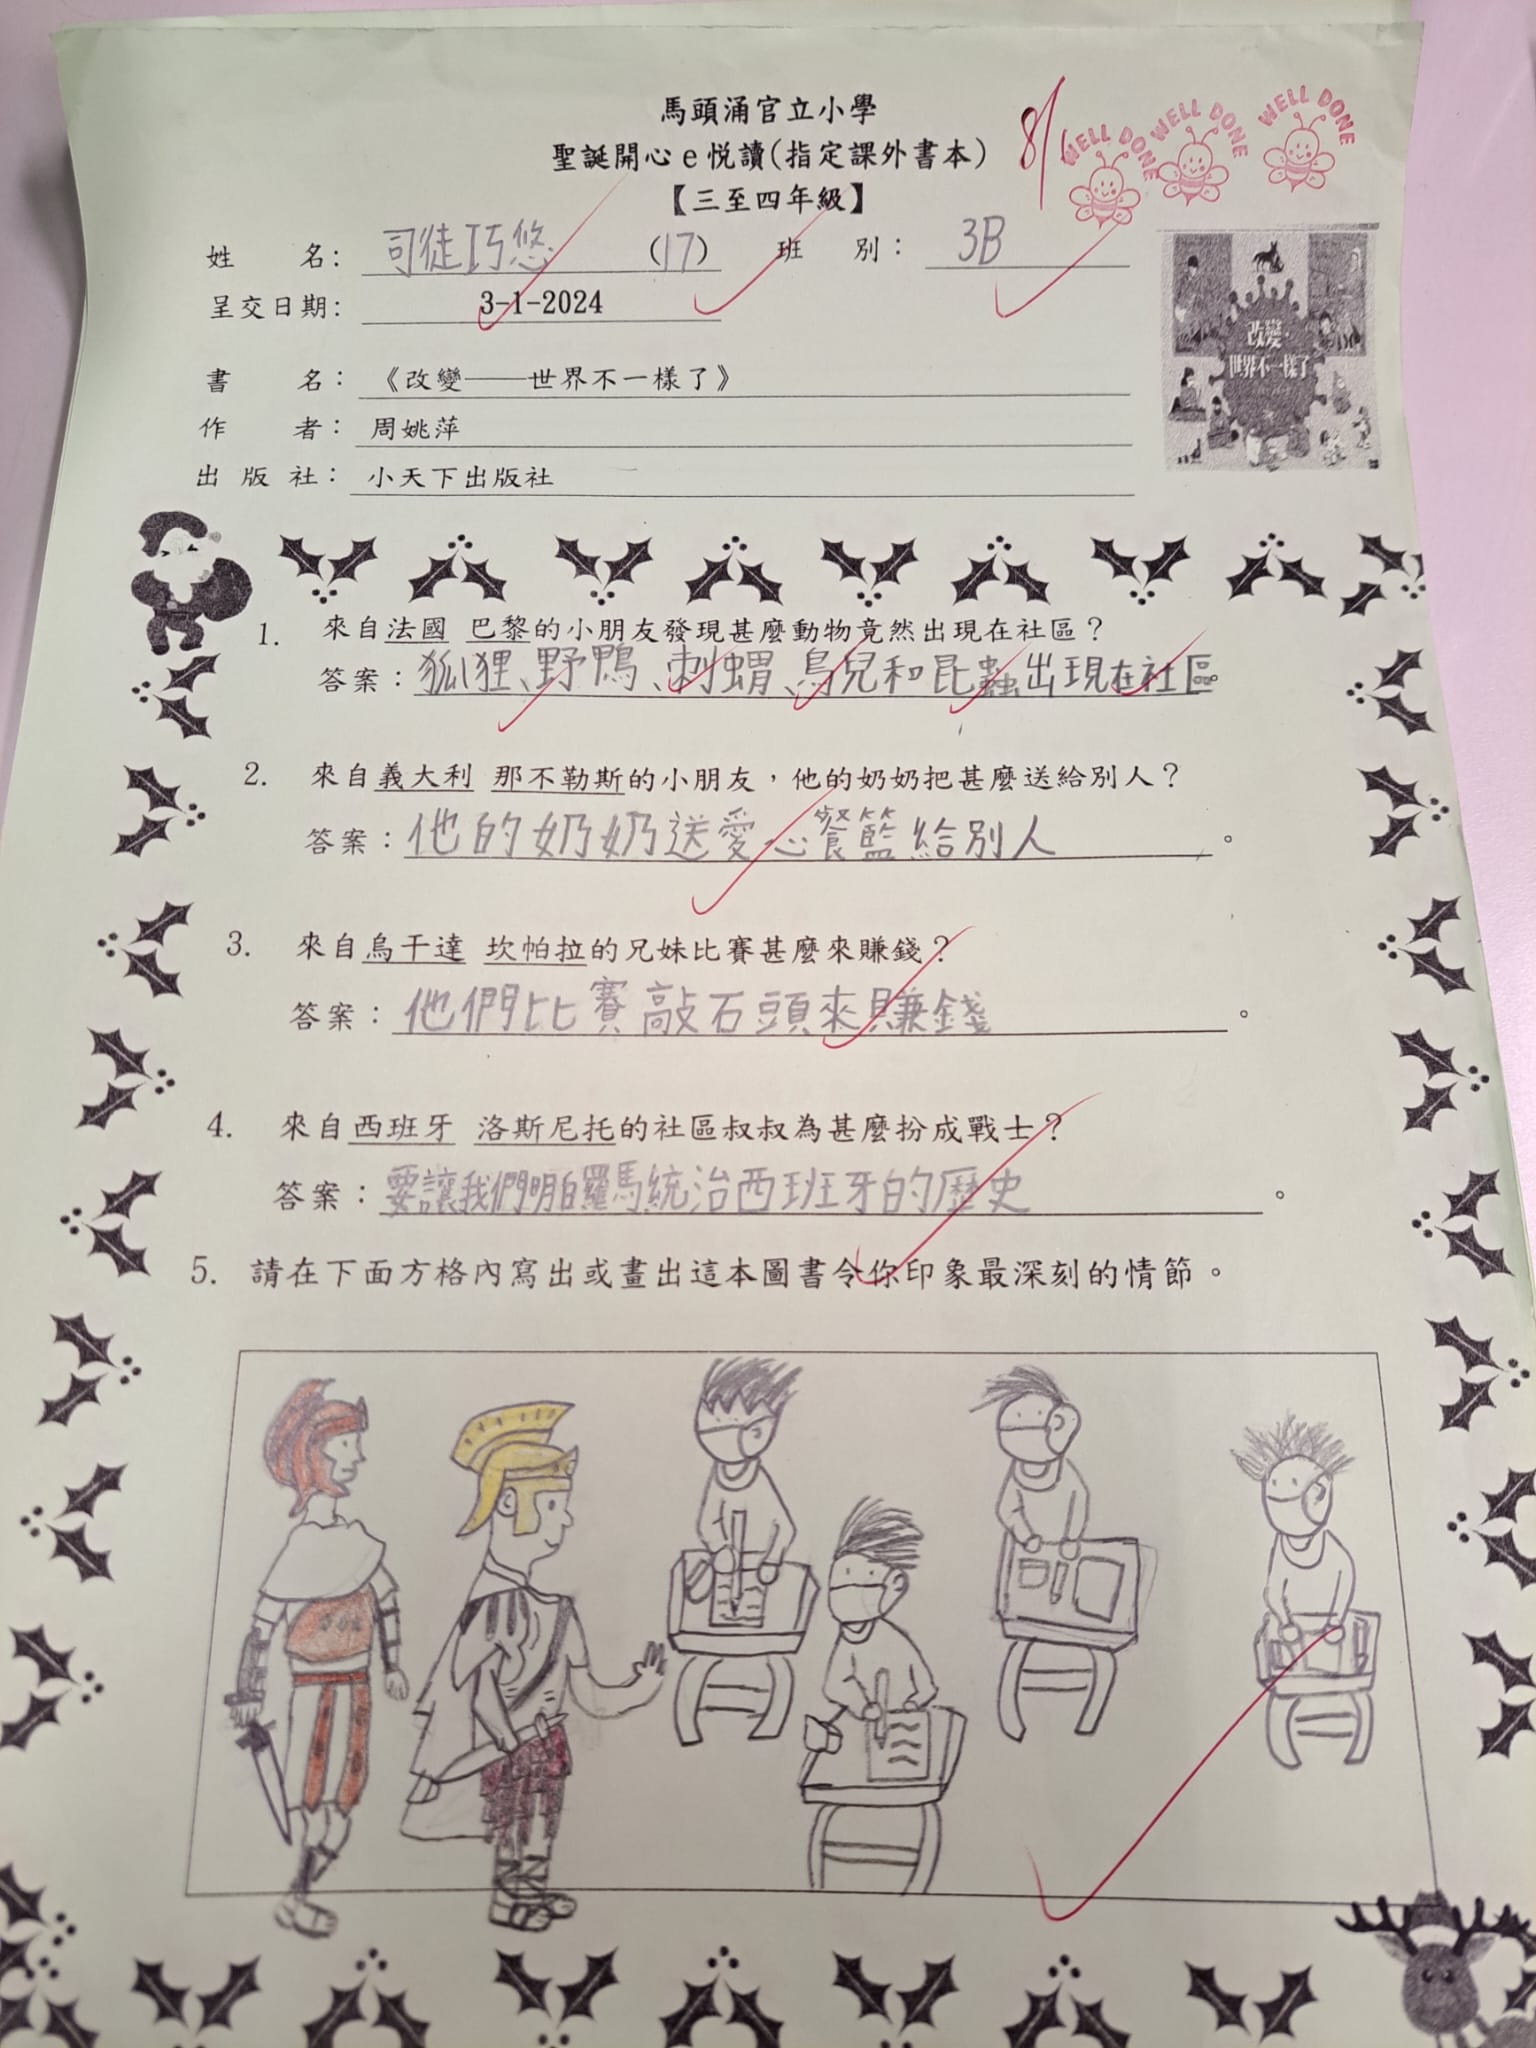 馬頭涌官立小學
聖誕開心e悅讀(指定課外書本)
【三至四年級】
8/1
WELL DONE
WELL DONE
WELL DONE
姓 名: 司徒巧悠 (17) 班 別: 3B
呈交日期: 3-1-2024
書 名: 《改變——世界不一樣了》
作 者: 周姚萍
出 版 社: 小天下出版社
改變，
世界不一樣了
1. 來自法國 巴黎的小朋友發現甚麼動物竟然出現在社區？
答案：狐狸、野鴨、刺蝟、鳥兒和昆蟲出現在社區。
2. 來自義大利 那不勒斯的小朋友，他的奶奶把甚麼送給別人？
答案：他的奶奶送愛心餐籃給別人。
3. 來自烏干達 坎帕拉的兄妹比賽甚麼來賺錢？
答案：他們比賽敲石頭來賺錢。
4. 來自西班牙 洛斯尼托的社區叔叔為甚麼扮成戰士？
答案：要讓我們明白羅馬統治西班牙的歷史。
5. 請在下面方格內寫出或畫出這本圖書令你印象最深刻的情節。